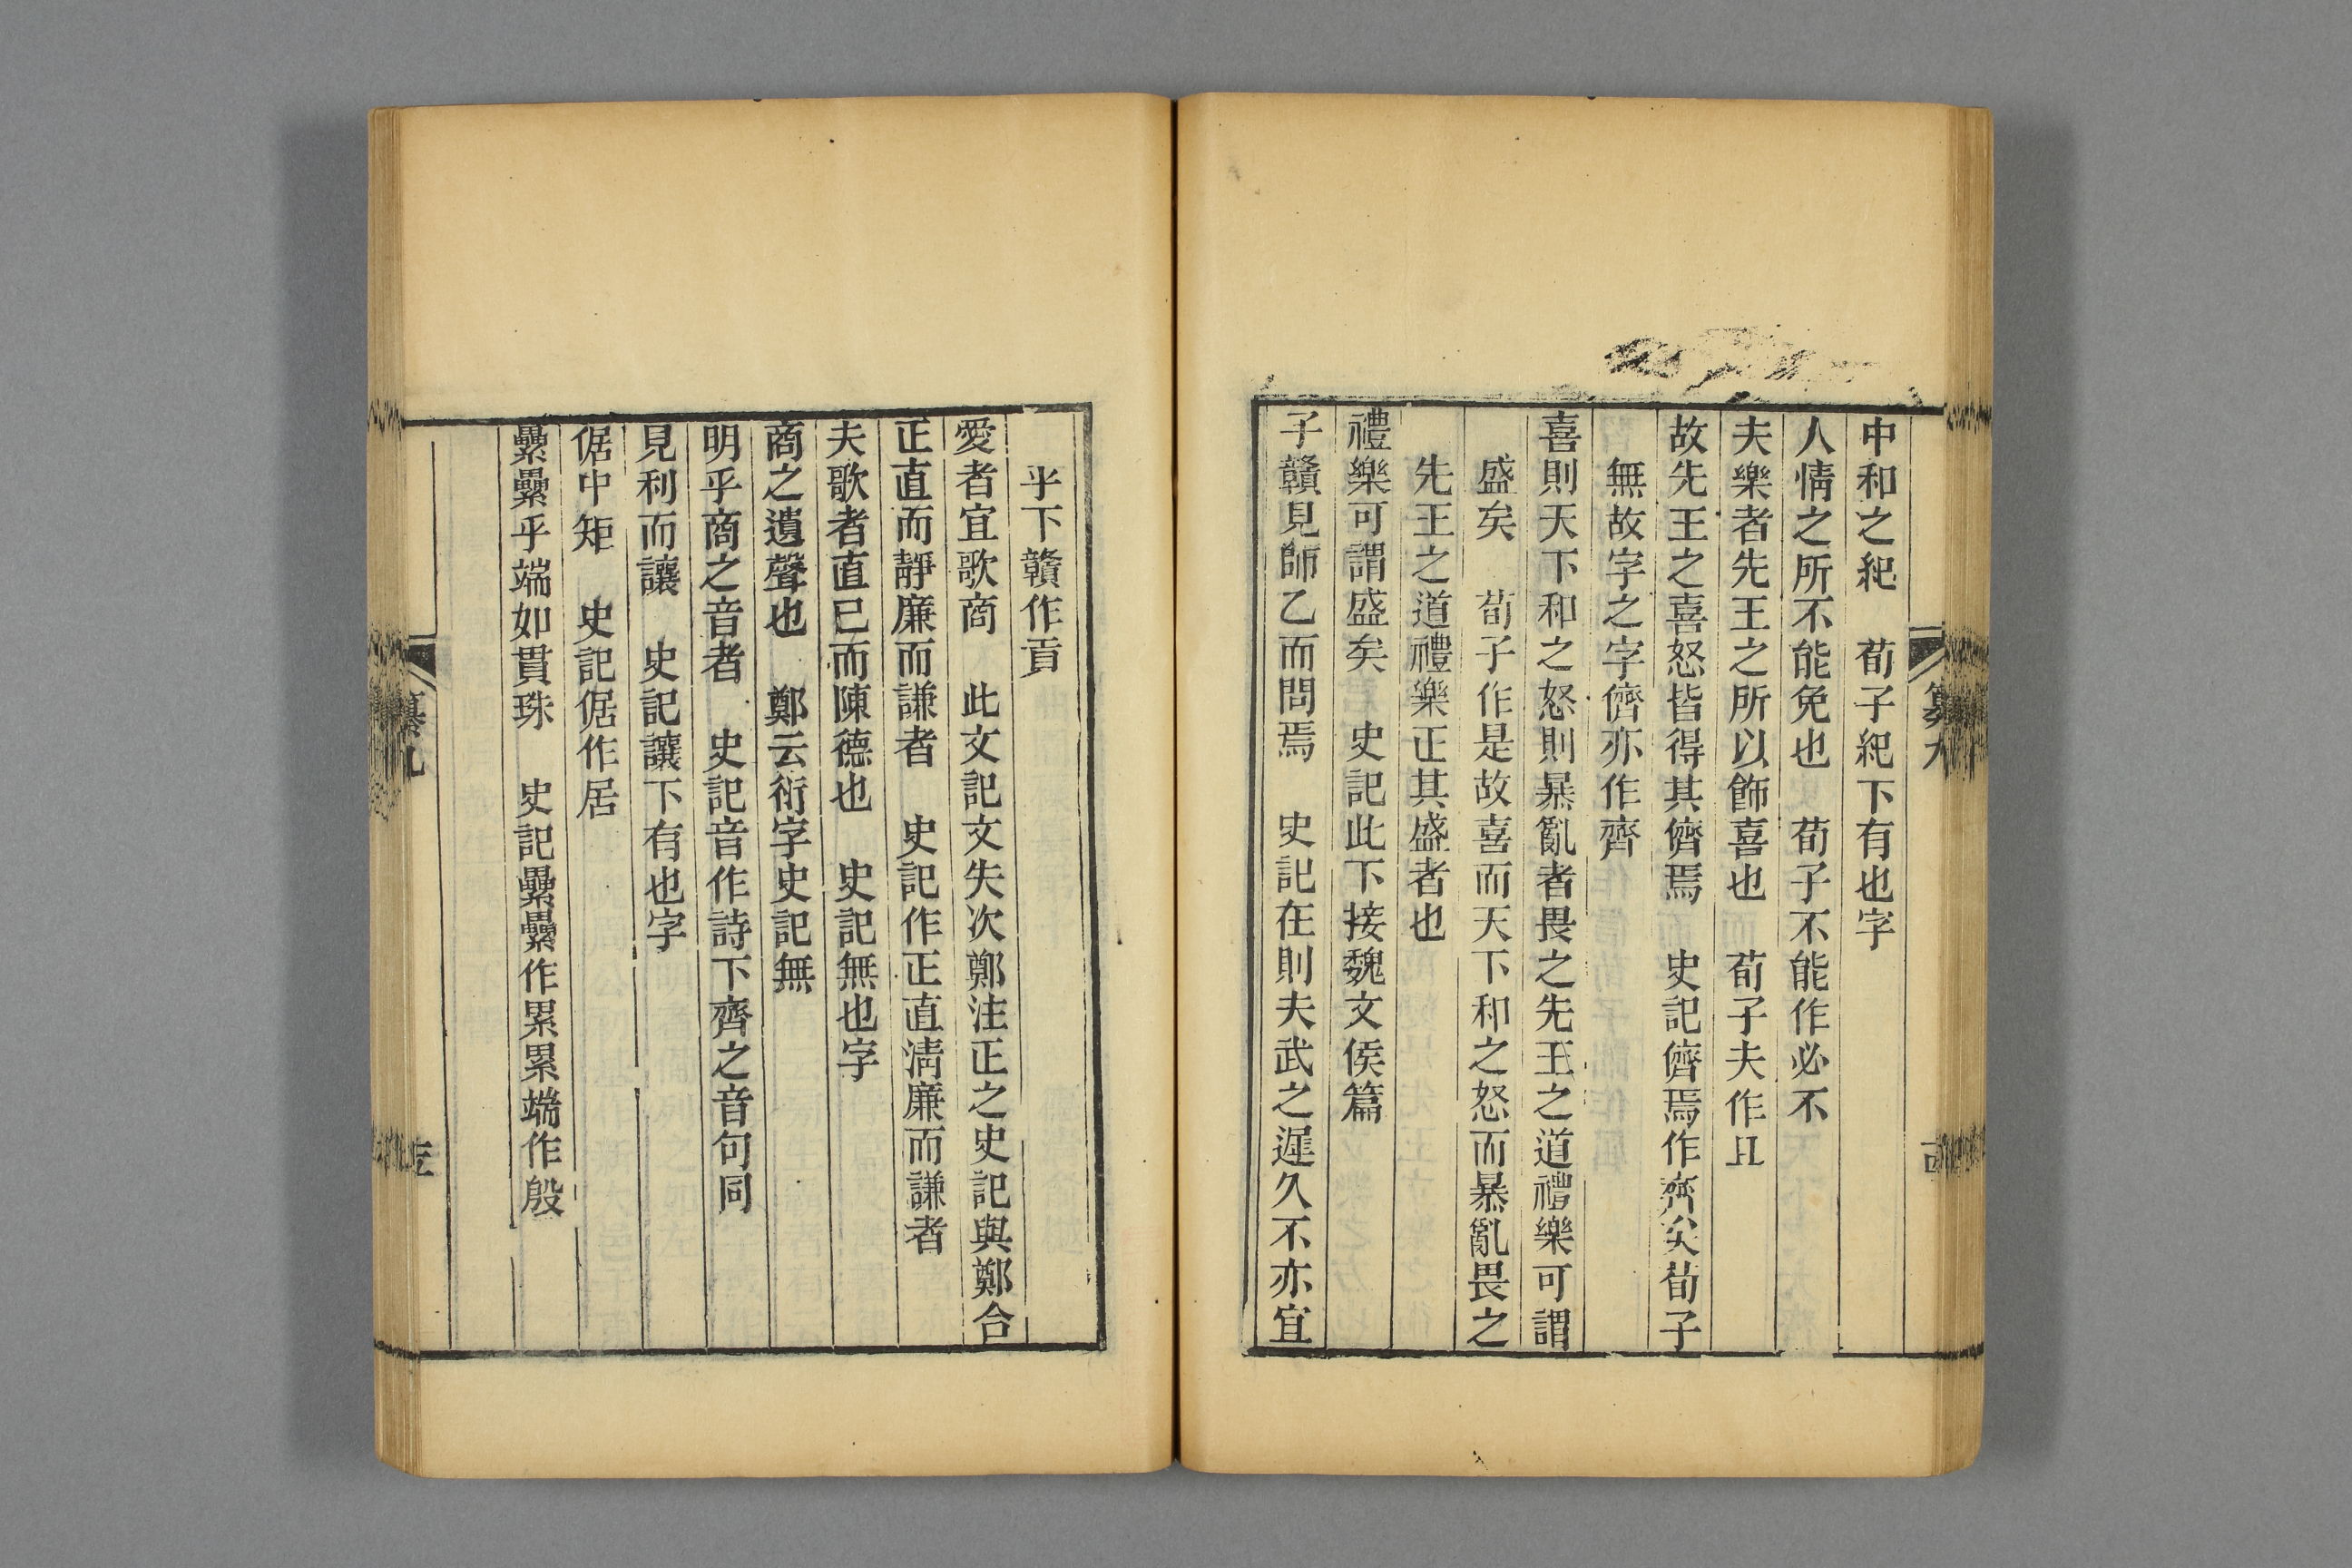 中和之紀　荀子紀下有也字
人情之所不能免也　荀子不能作必不
夫樂者先王之所以飾喜也　荀子夫作且
故先王之喜怒皆得其儕焉　史記儕焉作齊矣荀子
無故字之字儕亦作齊
喜則天下和之怒則暴亂者畏之先王之道禮樂可謂
盛矣　荀子作是故喜而天下和之怒而暴亂畏之
先王之道禮樂正其盛者也
禮樂可謂盛矣　史記此下接魏文侯篇
子贛見師乙而問焉　史記在則夫武之遲久不亦宜
乎下贛作貢
愛者宜歌商　此文記文失次鄭注正之史記與鄭合
正直而靜廉而謙者　史記作正直清廉而謙者
夫歌者直己而陳德也　史記無也字
商之遺聲也　鄭云衍字史記無
明乎商之音者　史記音作詩下齊之音句同
見利而讓　史記讓下有也字
倨中矩　史記倨作居
纍纍乎端如貫珠　史記纍纍作累累端作殷